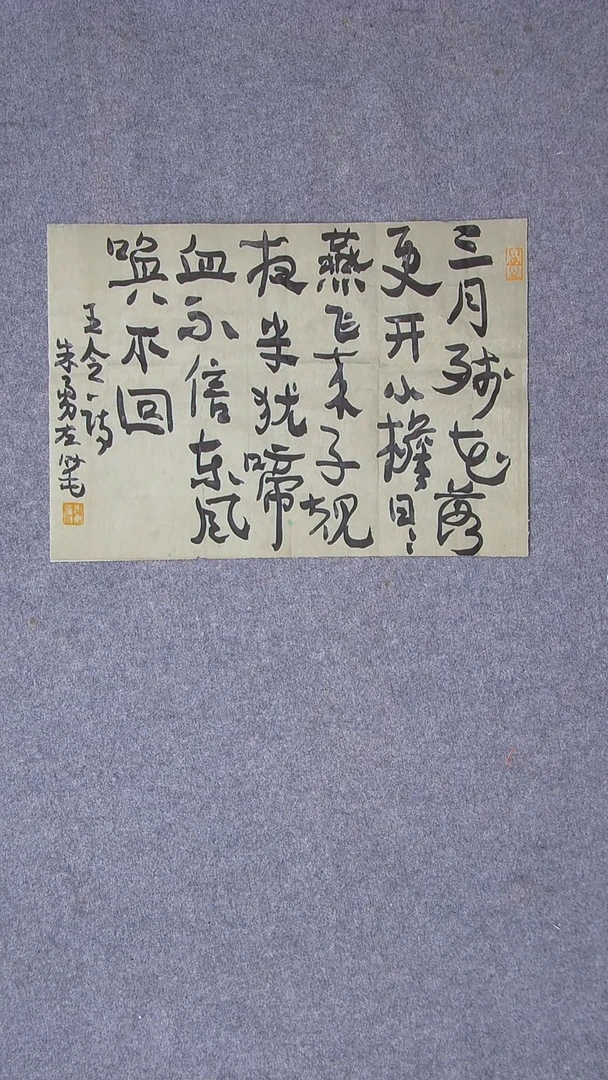 三月残花落
更开小檐日日
燕飞来子规
夜半犹啼
血不信东风
唤不回
王令诗
朱勇左笔